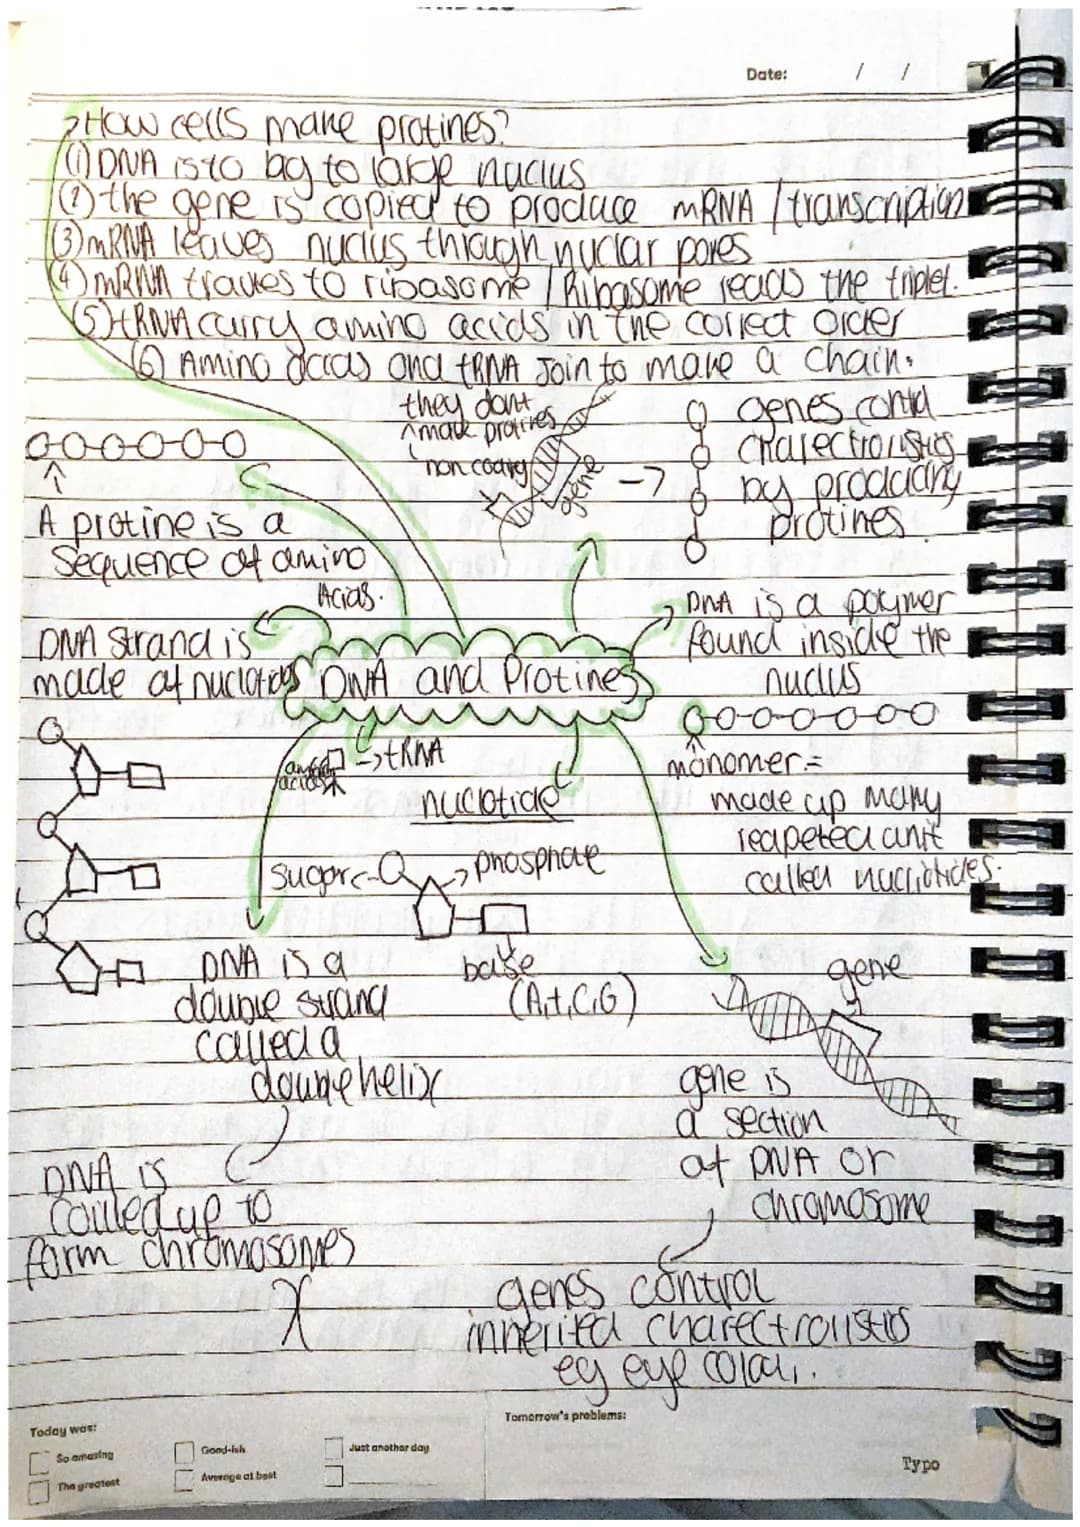 Date: / /
How cells make protines?
(1) DNA is to big to large nuclus
(2) the gene is copied to produce mRNA / transcription
(3) mRNA leaves nuclus through nuclar pores
(4) mRNA traves to ribosome / Ribosome reads the triplet.
(5) tRNA carry amino acids in the correct order
(6) Amino acids and tRNA Join to make a chain.
they dont
make protines
non coding
gene
genes contol
charectrolistics
by producing
protines.
A protine is a
sequence of amino
Acids.
DNA strand is
made of nuclotids
DNA and Protines
DNA is a polymer
found inside the
nuclus
monomer =
made up many
reapeted unit
called nucliotides.
amino
acids
tRNA
nuclotide
sugar
phosphate
base
(A,t,C,G)
DNA is a
double strand
called a
double helix
DNA is
coiled up to
form chromosomes
X
gene
gene is
a section
of DNA or
chromosome
genes control
inherited charectrolistics
eg eye colour.
Today was:
So amazing
Good-ish
Just another day
The greatest
Average at best
Tomorrow's problems:
Typo